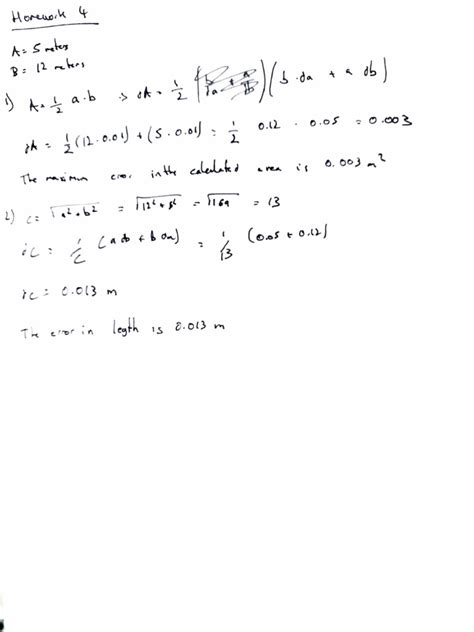 Homework 4
A = 5 meters
B = 12 meters
1) A = 1/2 a·b => dA = 1/2 (b·da + a db)
dA = 1/2 (12·0.01) + (5·0.01) = 1/2 0.12 · 0.05 = 0.003
The maximum error in the calculated area is 0.003 m²
2) c = √a²+b² = √12²+5² = √169 = 13
dC = 1/C (a db + b da) = 1/13 (0.05 + 0.12)
dC = 0.013 m
The error in legth is 0.013 m